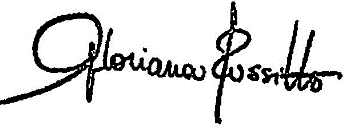 Floriana Russitto